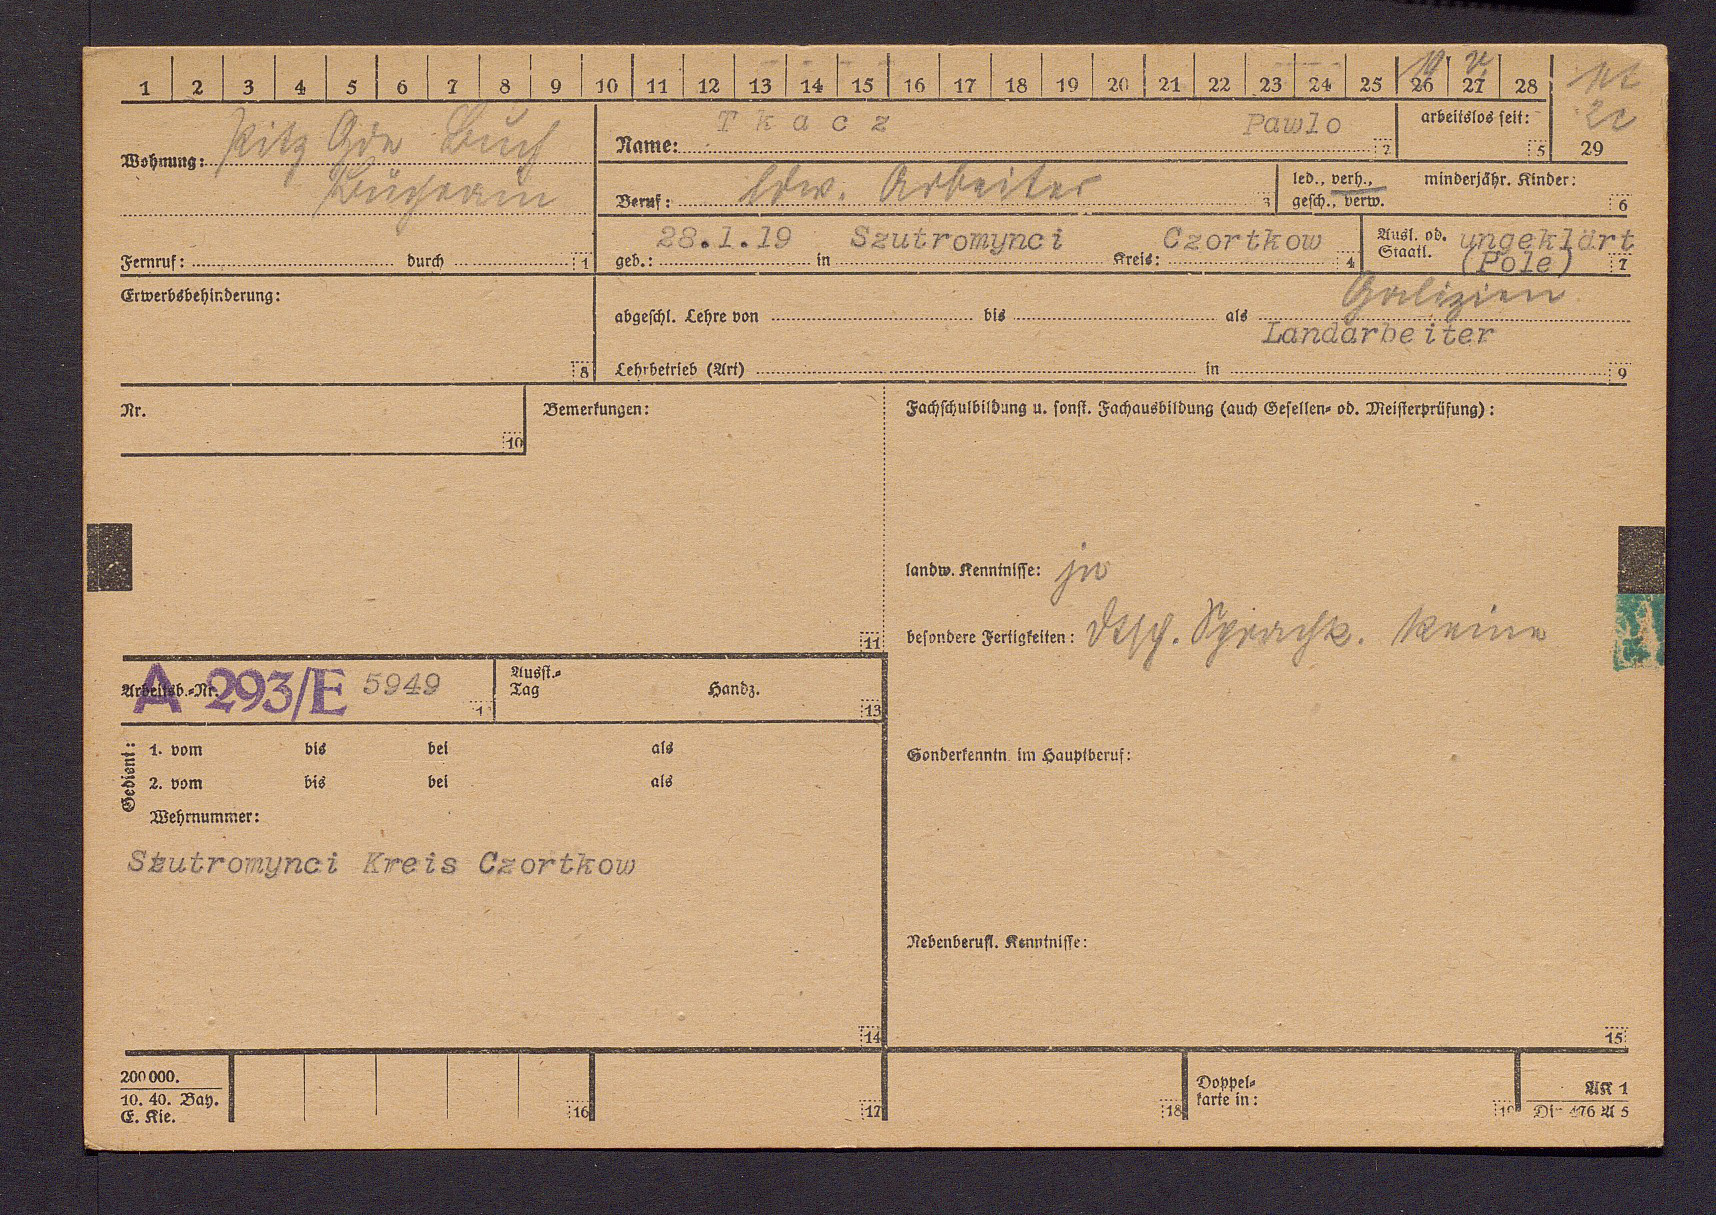 1 2 3 4 5 6 7 8 9 10 11 12 13 14 15 16 17 18 19 20 21 22 23 24 25 26 27 28
29
Wohnung: Ritz Gde Buch
Fernruf: durch 1
Name: Tkacz Pawlo 2
arbeitslos seit: 5
Beruf: ldw. Arbeiter 3
led., verh., gesch., verw.
minderjähr. Kinder: 6
geb.: 28.1.19 in Szutromynci Kreis: Czortkow 4
Ausl. od. Staatl. ungeklärt (Pole) 7
Galizien
Erwerbsbehinderung: 8
abgeschl. Lehre von bis als
Landarbeiter
Lehrbetrieb (Art) in 9
Nr. 10
Bemerkungen: 11
Fachschulbildung u. sonst. Fachausbildung (auch Gesellen- od. Meisterprüfung):
landw. Kenntnisse: ja
besondere Fertigkeiten: Dtsch. Sprachk. keine
Arbeitsb.-Nr. A 293/E 5949
Ausst.-Tag Handz. 13
Gedient:
1. vom bis bei als
2. vom bis bei als
Wehrnummer:
Szutromynci Kreis Czortkow
14
Sonderkenntn. im Hauptberuf:
Nebenberufl. Kenntnisse:
15
200 000.
10. 40. Bay.
E. Kie.
16 17 18
Doppel-
karte in: 19
AK 1
Din 476 A 5